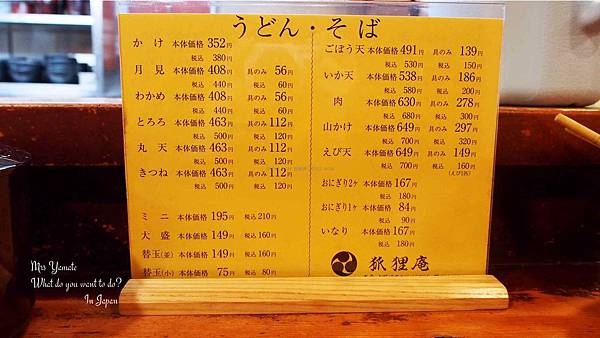 うどん・そば
かけ 本体価格 352円
税込 380円
月見 本体価格 408円 具のみ 56円
税込 440円 税込 60円
わかめ 本体価格 408円 具のみ 56円
税込 440円 税込 60円
とろろ 本体価格 463円 具のみ 112円
税込 500円 税込 120円
丸天 本体価格 463円 具のみ 112円
税込 500円 税込 120円
きつね 本体価格 463円 具のみ 112円
税込 500円 税込 120円
ミニ 本体価格 195円 税込 210円
大盛 本体価格 149円 税込 160円
替玉(並) 本体価格 149円 税込 160円
替玉(小) 本体価格 75円 税込 80円
ごぼう天 本体価格 491円 具のみ 139円
税込 530円 税込 150円
いか天 本体価格 538円 具のみ 186円
税込 580円 税込 200円
肉 本体価格 630円 具のみ 278円
税込 680円 税込 300円
山かけ 本体価格 649円 具のみ 297円
税込 700円 税込 320円
えび天 本体価格 649円 具のみ 149円
税込 700円 税込 160円
(えび1本)
おにぎり2ヶ 本体価格 167円
税込 180円
おにぎり1ヶ 本体価格 84円
税込 90円
いなり 本体価格 167円
税込 180円
狐狸庵
Mrs Yamato
What do you want to do?
In Japan